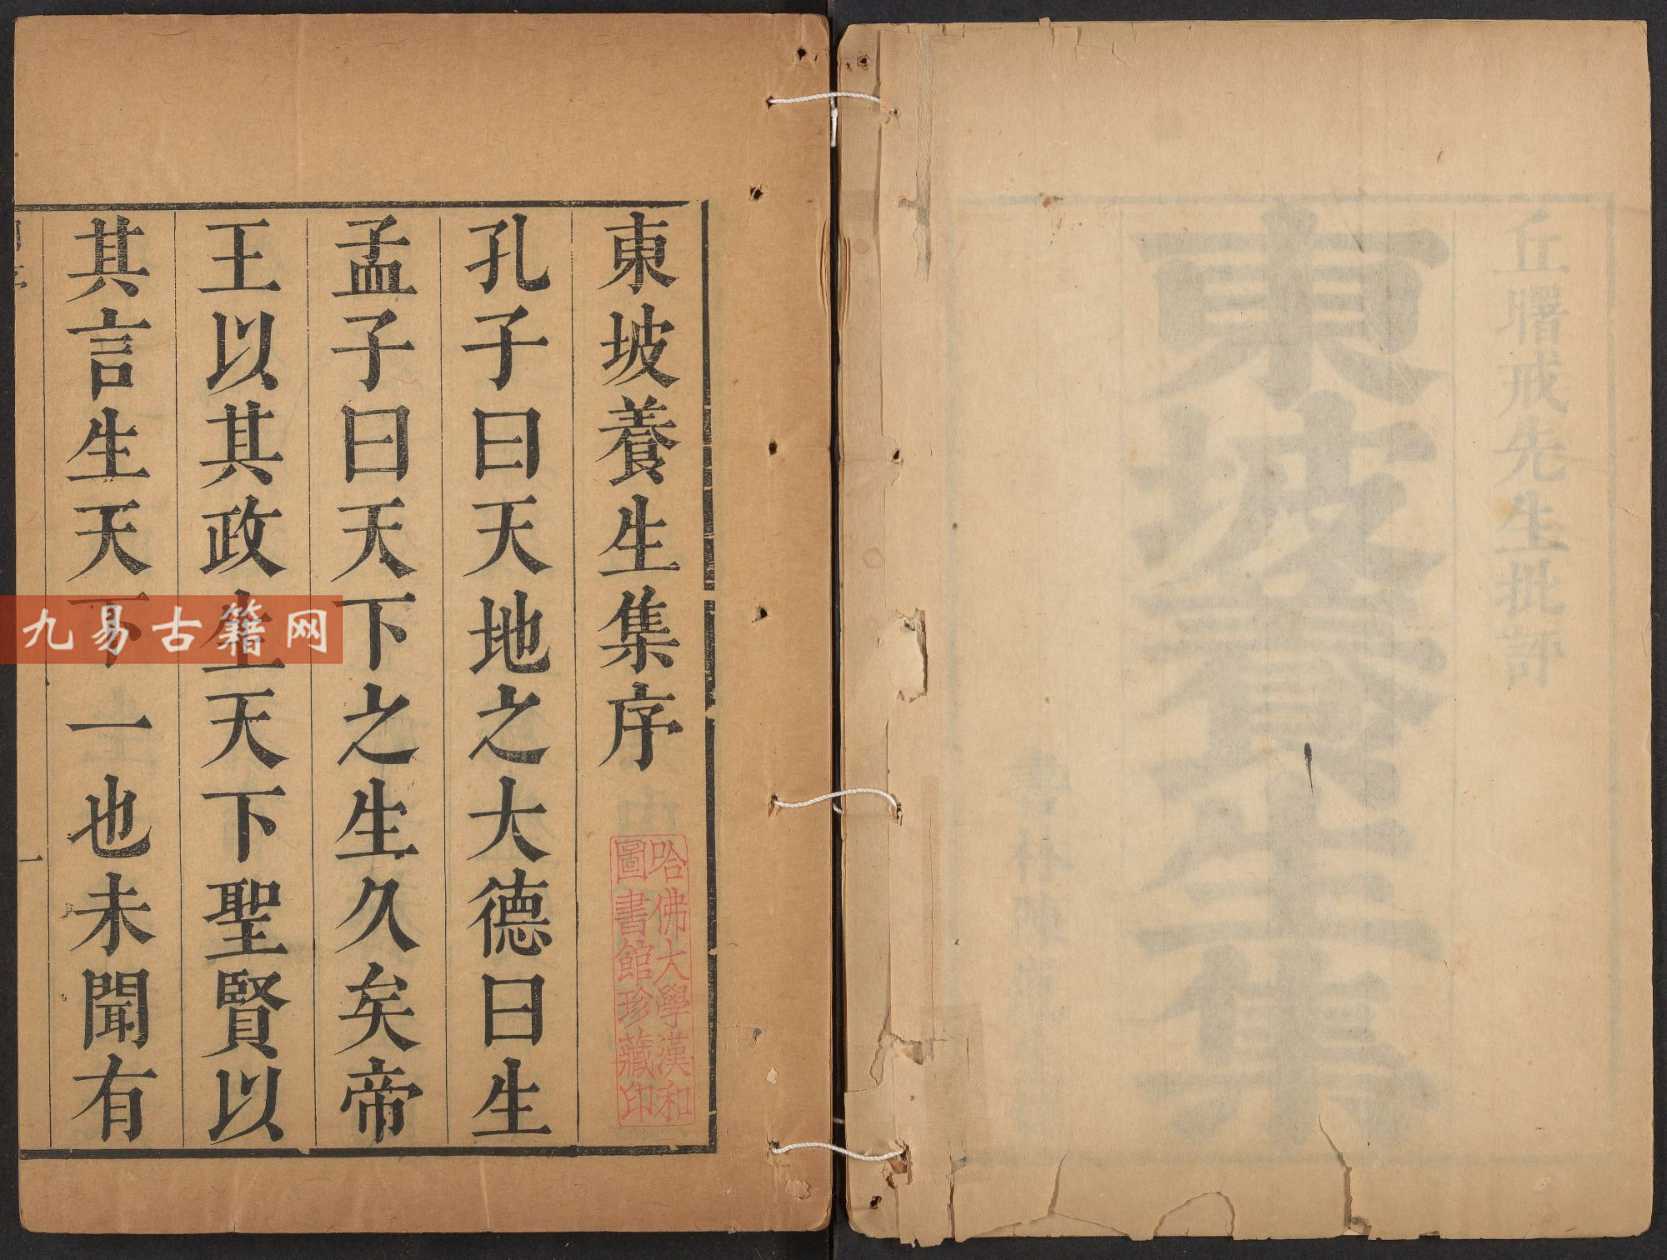 丘曙戒先生批評
東坡養生集
東坡養生集序
孔子曰天地之大德曰生
孟子曰天下之生久矣帝
王以其政生天下聖賢以
其言生天下一也未聞有
一
哈佛大學漢和
圖書館珍藏印
九易古籍网